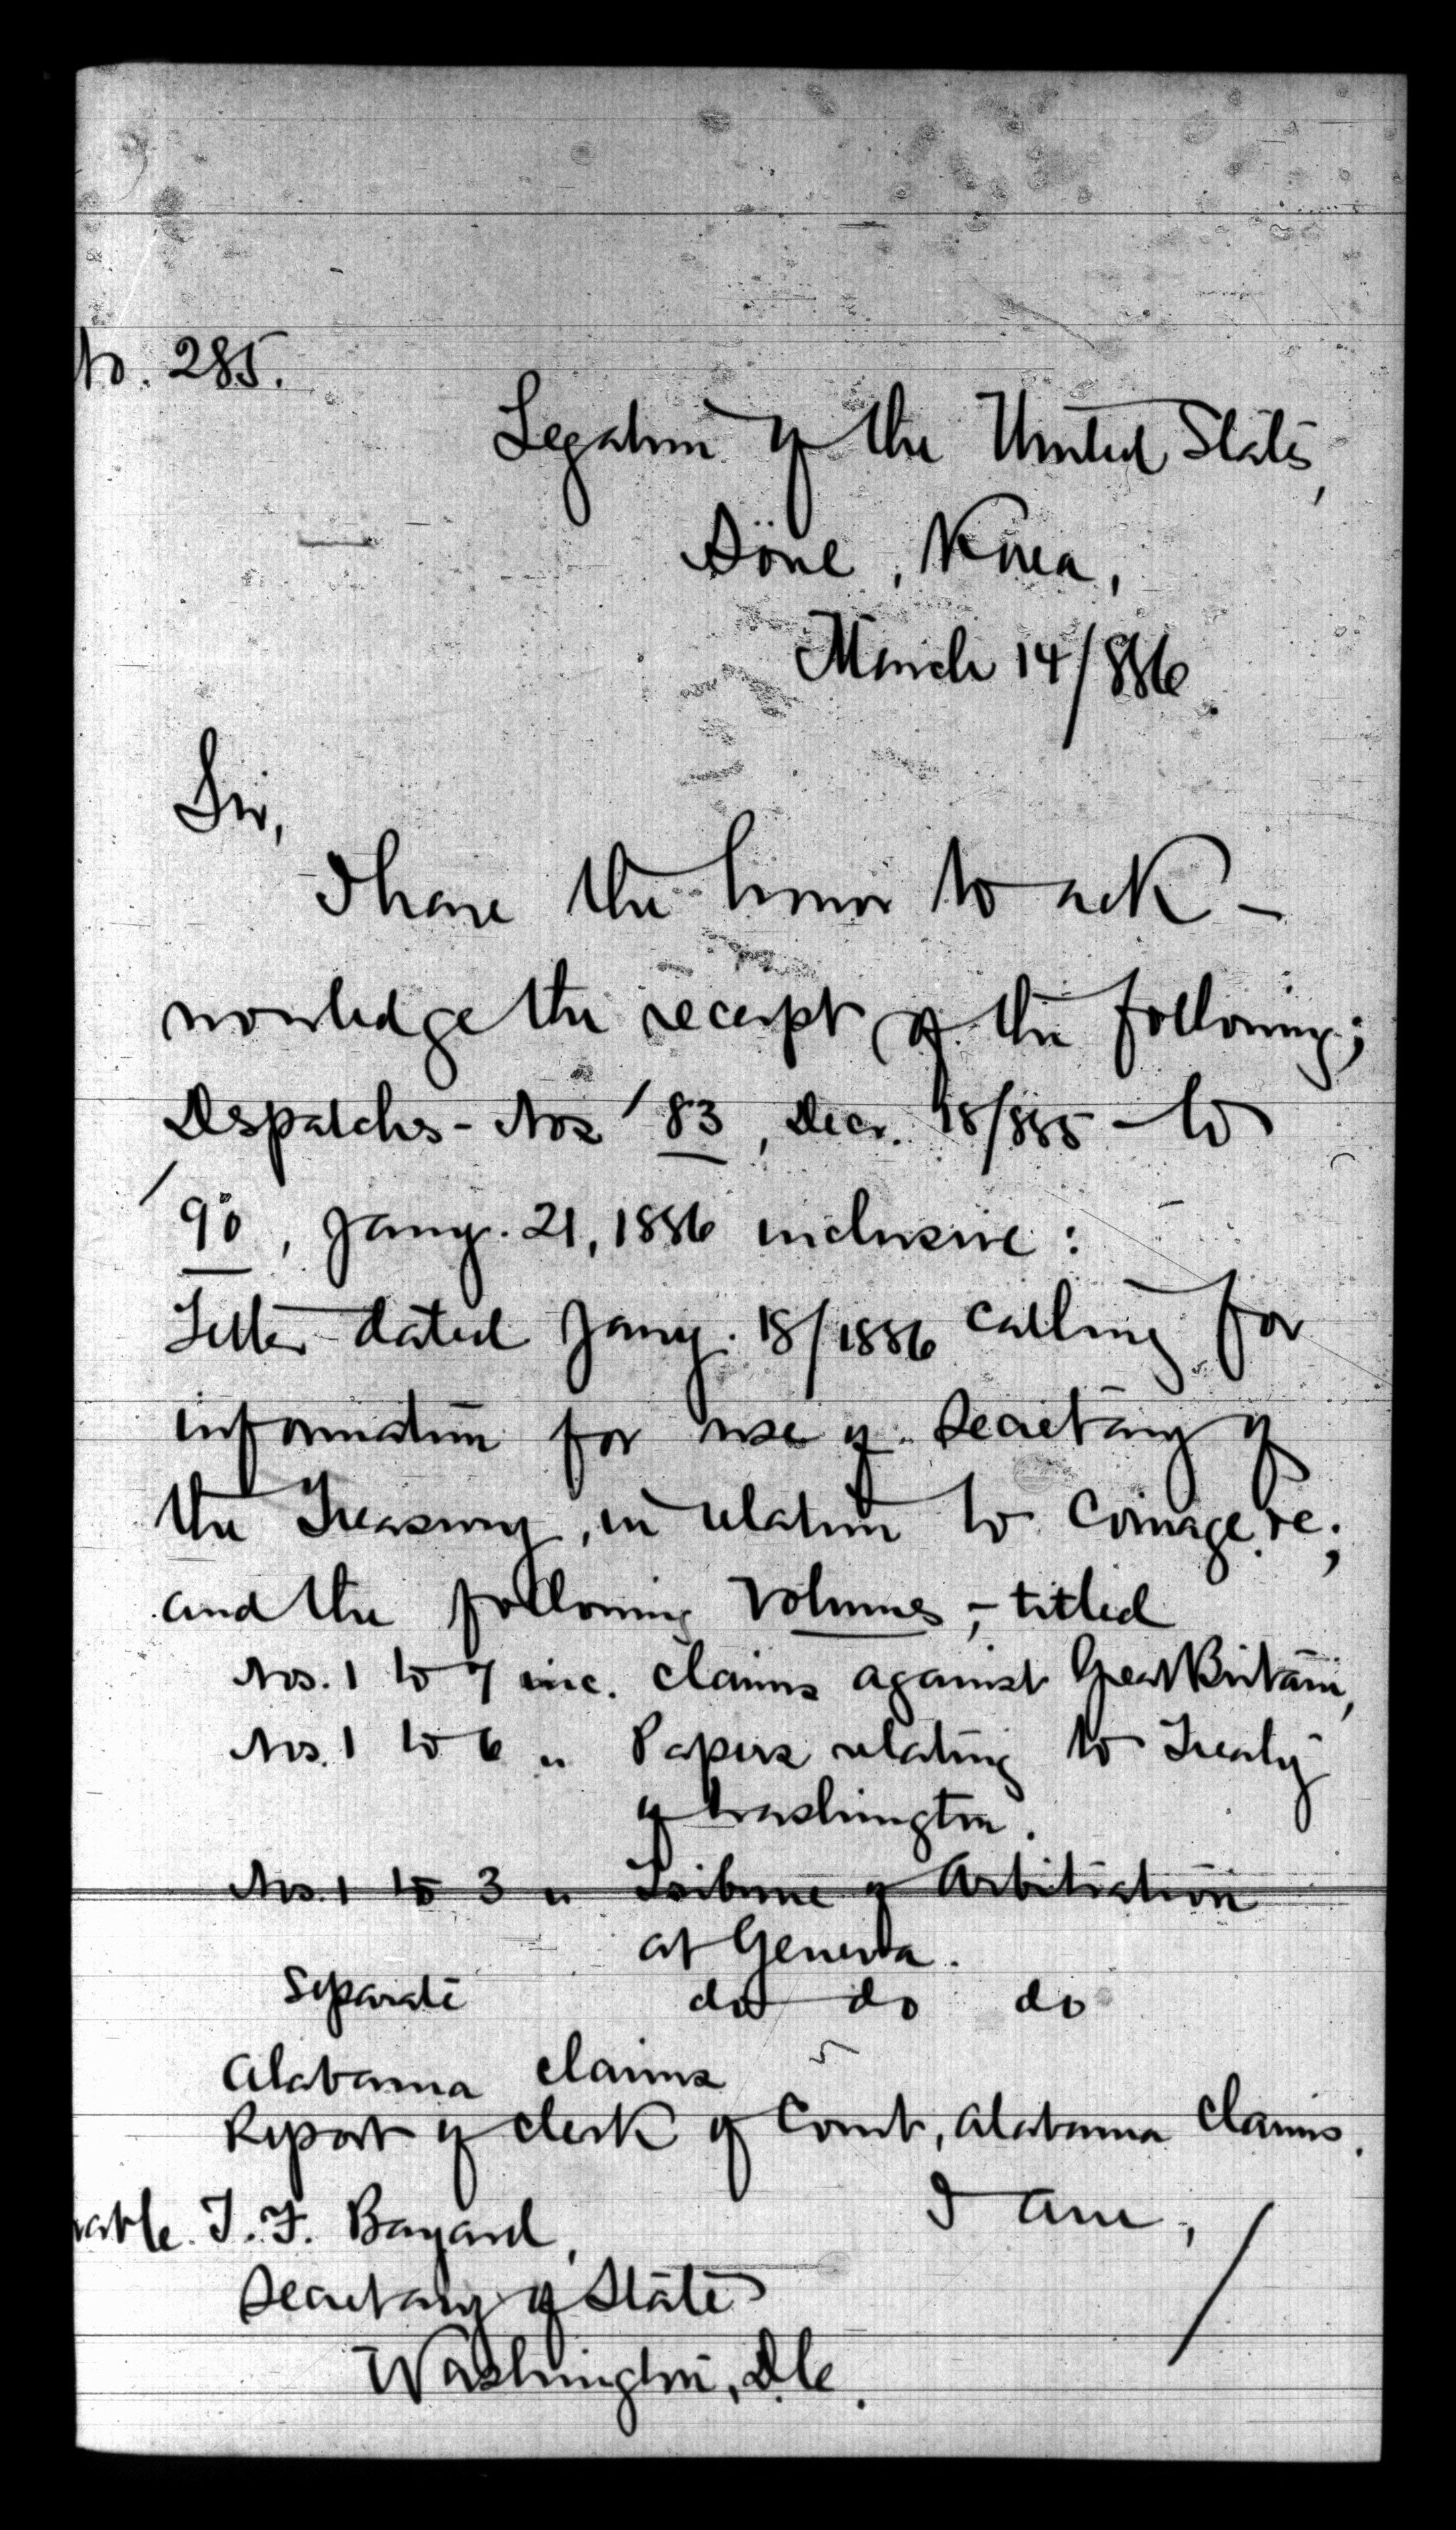 No. 285.
Legation of the United States,
Söul, Korea,
March 14/886.
Sir,
I have the honor to ack-
nowledge the receipt of the following;
Despatches - Nos '83, Decr. 18/885 - to
'90, Jany. 21, 1886 inclusive:
Letter dated Jany. 18/1886 calling for
information for use of Secretary of
the Treasury, in relation to Coinage &c;
and the following Volumes, - titled
Nos. 1 to 7 inc. Claims against Great Britain,
Nos. 1 to 6 " Papers relating to Treaty
of Washington.
Nos. 1 to 3 " Tribune of Arbitration
at Geneva.
Separate do do do
Alabama Claims
Report of Clerk of Court, Alabama Claims.
I am,
rable T. F. Bayard,
Secretary of State
Washington, D.C.